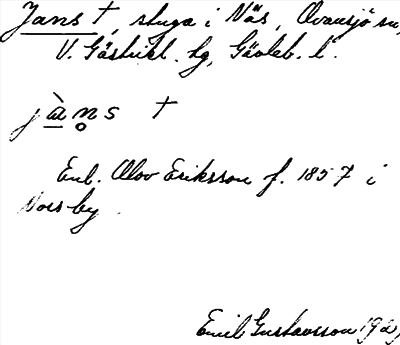 Jans †, stuga i Näs, Ovansjö sn,
V. Gästrikl. hg, Gävleb. l.
jàns †
Enl. Olov Eriksson f. 1857 i
Norsby.
Emil Gustavsson 192